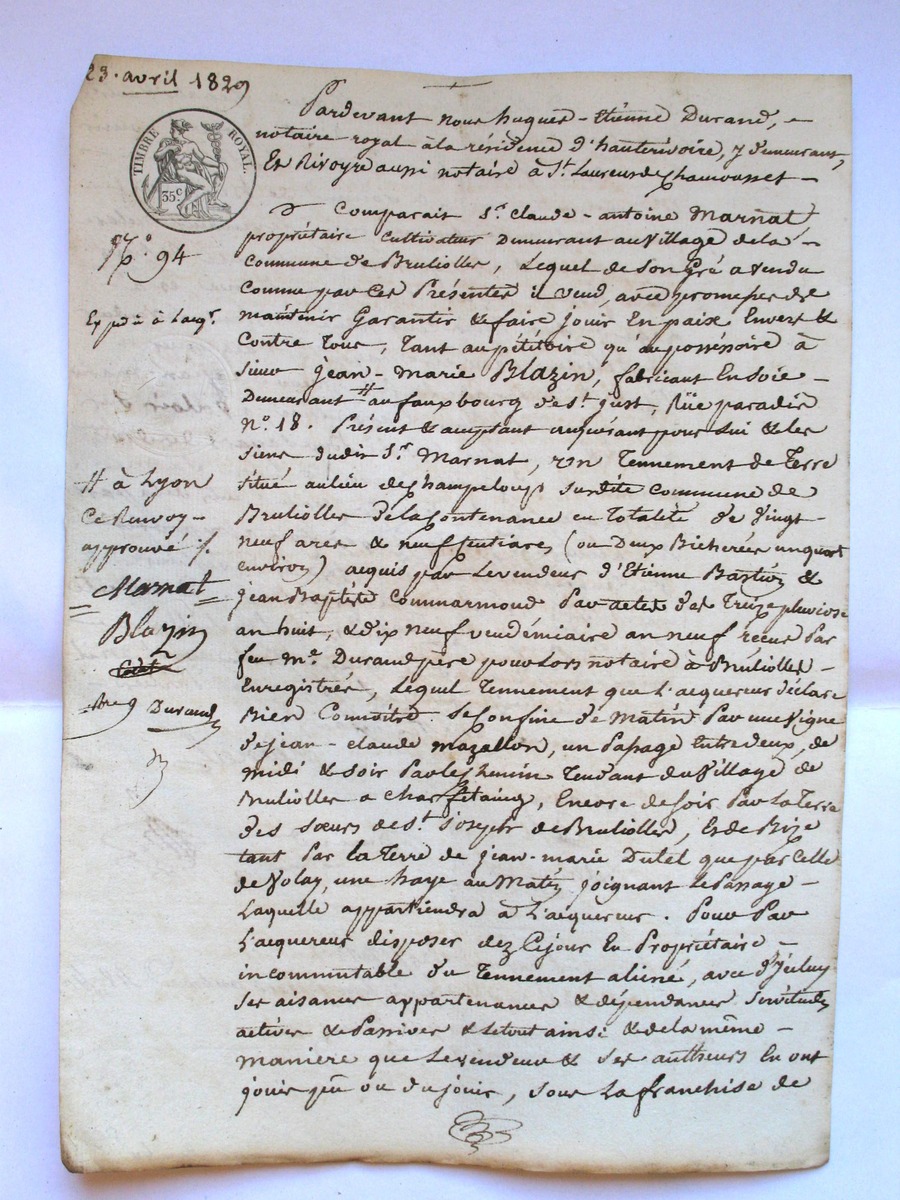 23. avril 1829
TIMBRE ROYAL.
35c
Pardevant nous hugues-Etienne Durand,
notaire royal à la résidence d'hauterivoire, y demeurant,
Et Rivoyre aussi notaire à St. Laurent de Chamousset
Comparait Sr. Claude-antoine Marnat
propriétaire cultivateur Demeurant au Village de la
Commune de Brulliolles, Lequel de son Gré a vendu
Comme par ces Présentes il vend, avec promesse de
maintenir Garantir & faire jouir En paix Envers &
Contre Tous, Tant au pétitoire qu'au possessoire à
sieur jean-marie Blazin, fabricant En soie
Demeurant # au faux bourg de St. just, Rüe paradis
N°. 18. Présent & acceptant acquérant pour lui & les
siens dudit Sr. Marnat, un Tennement de Terre
situé au lieu des champeloup surdite commune de
Brulliolles de la Contenance en Totalité de vingt-
neuf ares & neuf Centiares (ou Deux Bicherées un quart
environ) acquis par Le vendeur d'Etienne Bastion &
jean Baptiste Commarmond Par actes des Treize pluviose
an huit, & dix neuf vendémiaire an neuf reçus Par
feu Me. Durand père pour lors notaire à Brulliolles
Enregistrés, Lequel Tennement que L'acquereur déclare
Bien Connoître. Se Confine de Matin Par une Vigne
de jean-claude mazallon, un Passage Entre deux, de
midi & soir Par le Chemin Tendant du Village de
Brulliolles a Charfetaing, Encore de soir Par La Terre
des sœurs de St. joseph de Brulliolles, & de Bize
tant Par la Terre de jean-marie Dutel que par Celle
de Volay, une haye au Matin joignant le Passage
Laquelle appartiendra à L'acquereur. Pour Par
L'acquereur disposer dez Cejour En Propriétaire
incommutable du Tennement aliéné, avec d'Iceluy
ses aisances appartenances & dépendances servitudes
actives & Passives & le tout ainsi & de la même
manière que Le vendeur & ses autheurs En ont
jouis peu ou du jouir, sous La franchise de
94
Expédié à l'acqr.
# à Lyon
Ce Renvoy
approuvé ./.
Marnat
Blazin
Durand